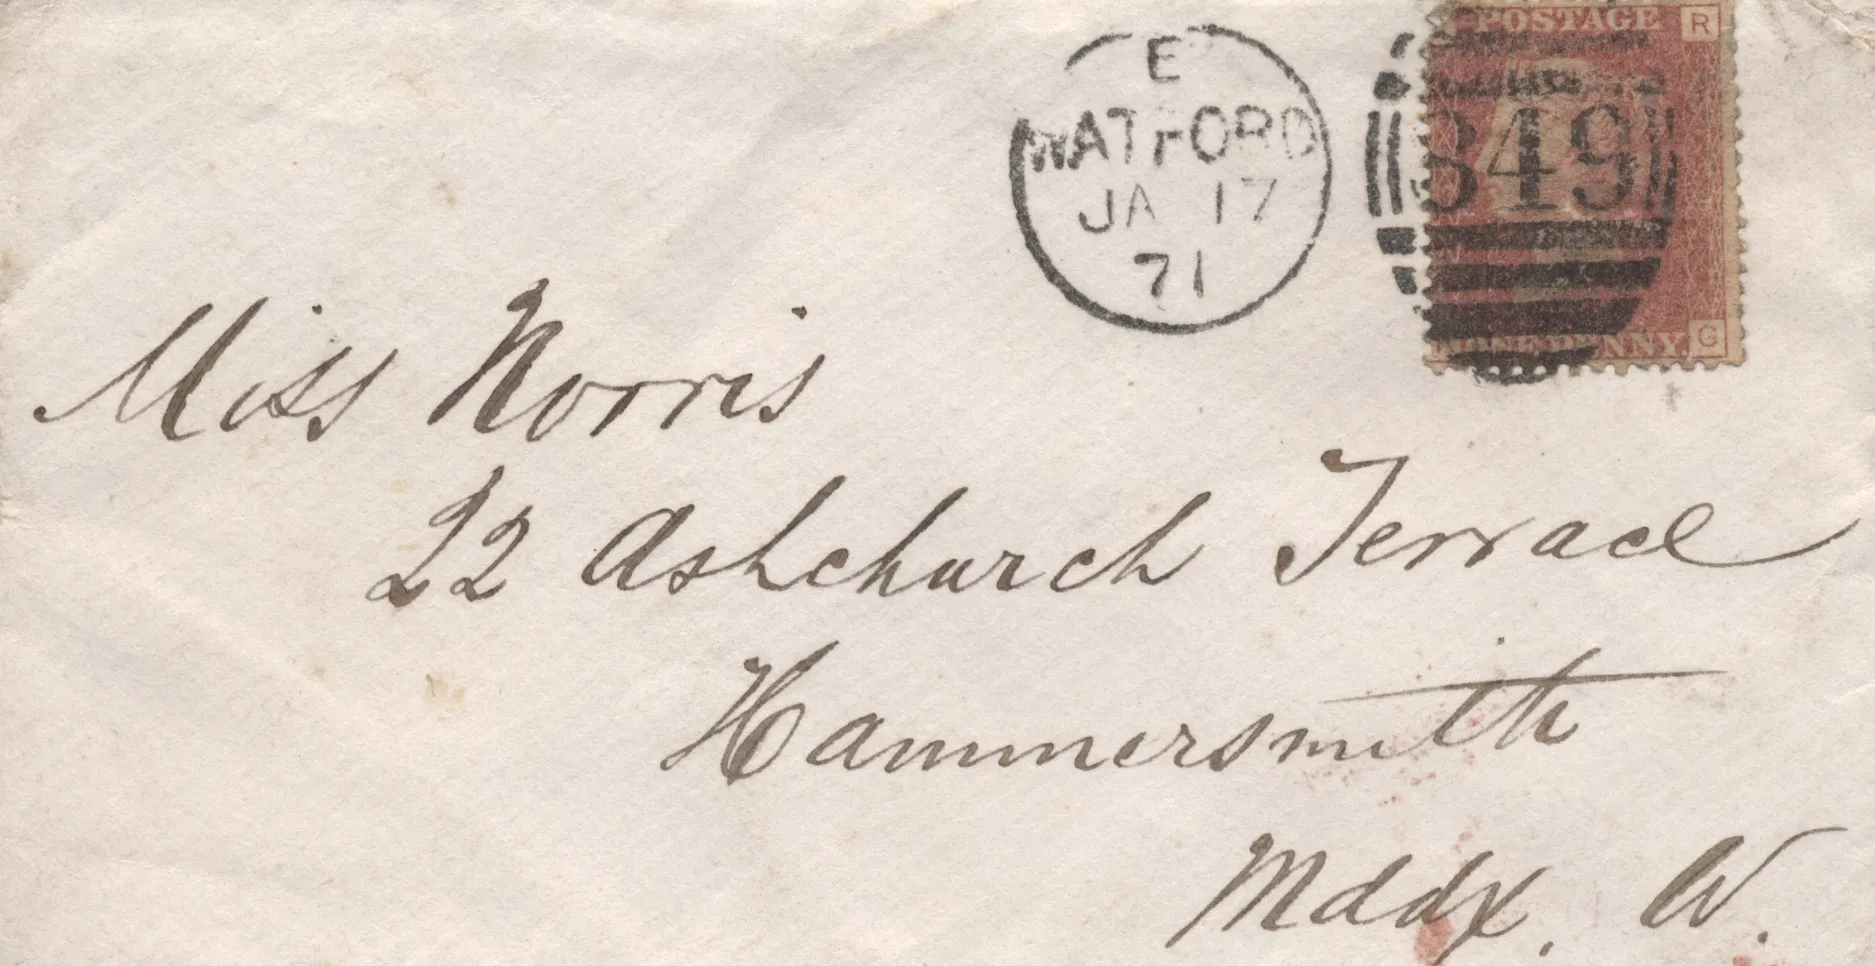 E
WATFORD
JA 17
71
POSTAGE
R
849
ONE PENNY
G
Miss Norris
22 Ashchurch Terrace
Hammersmith
Mddx. W.